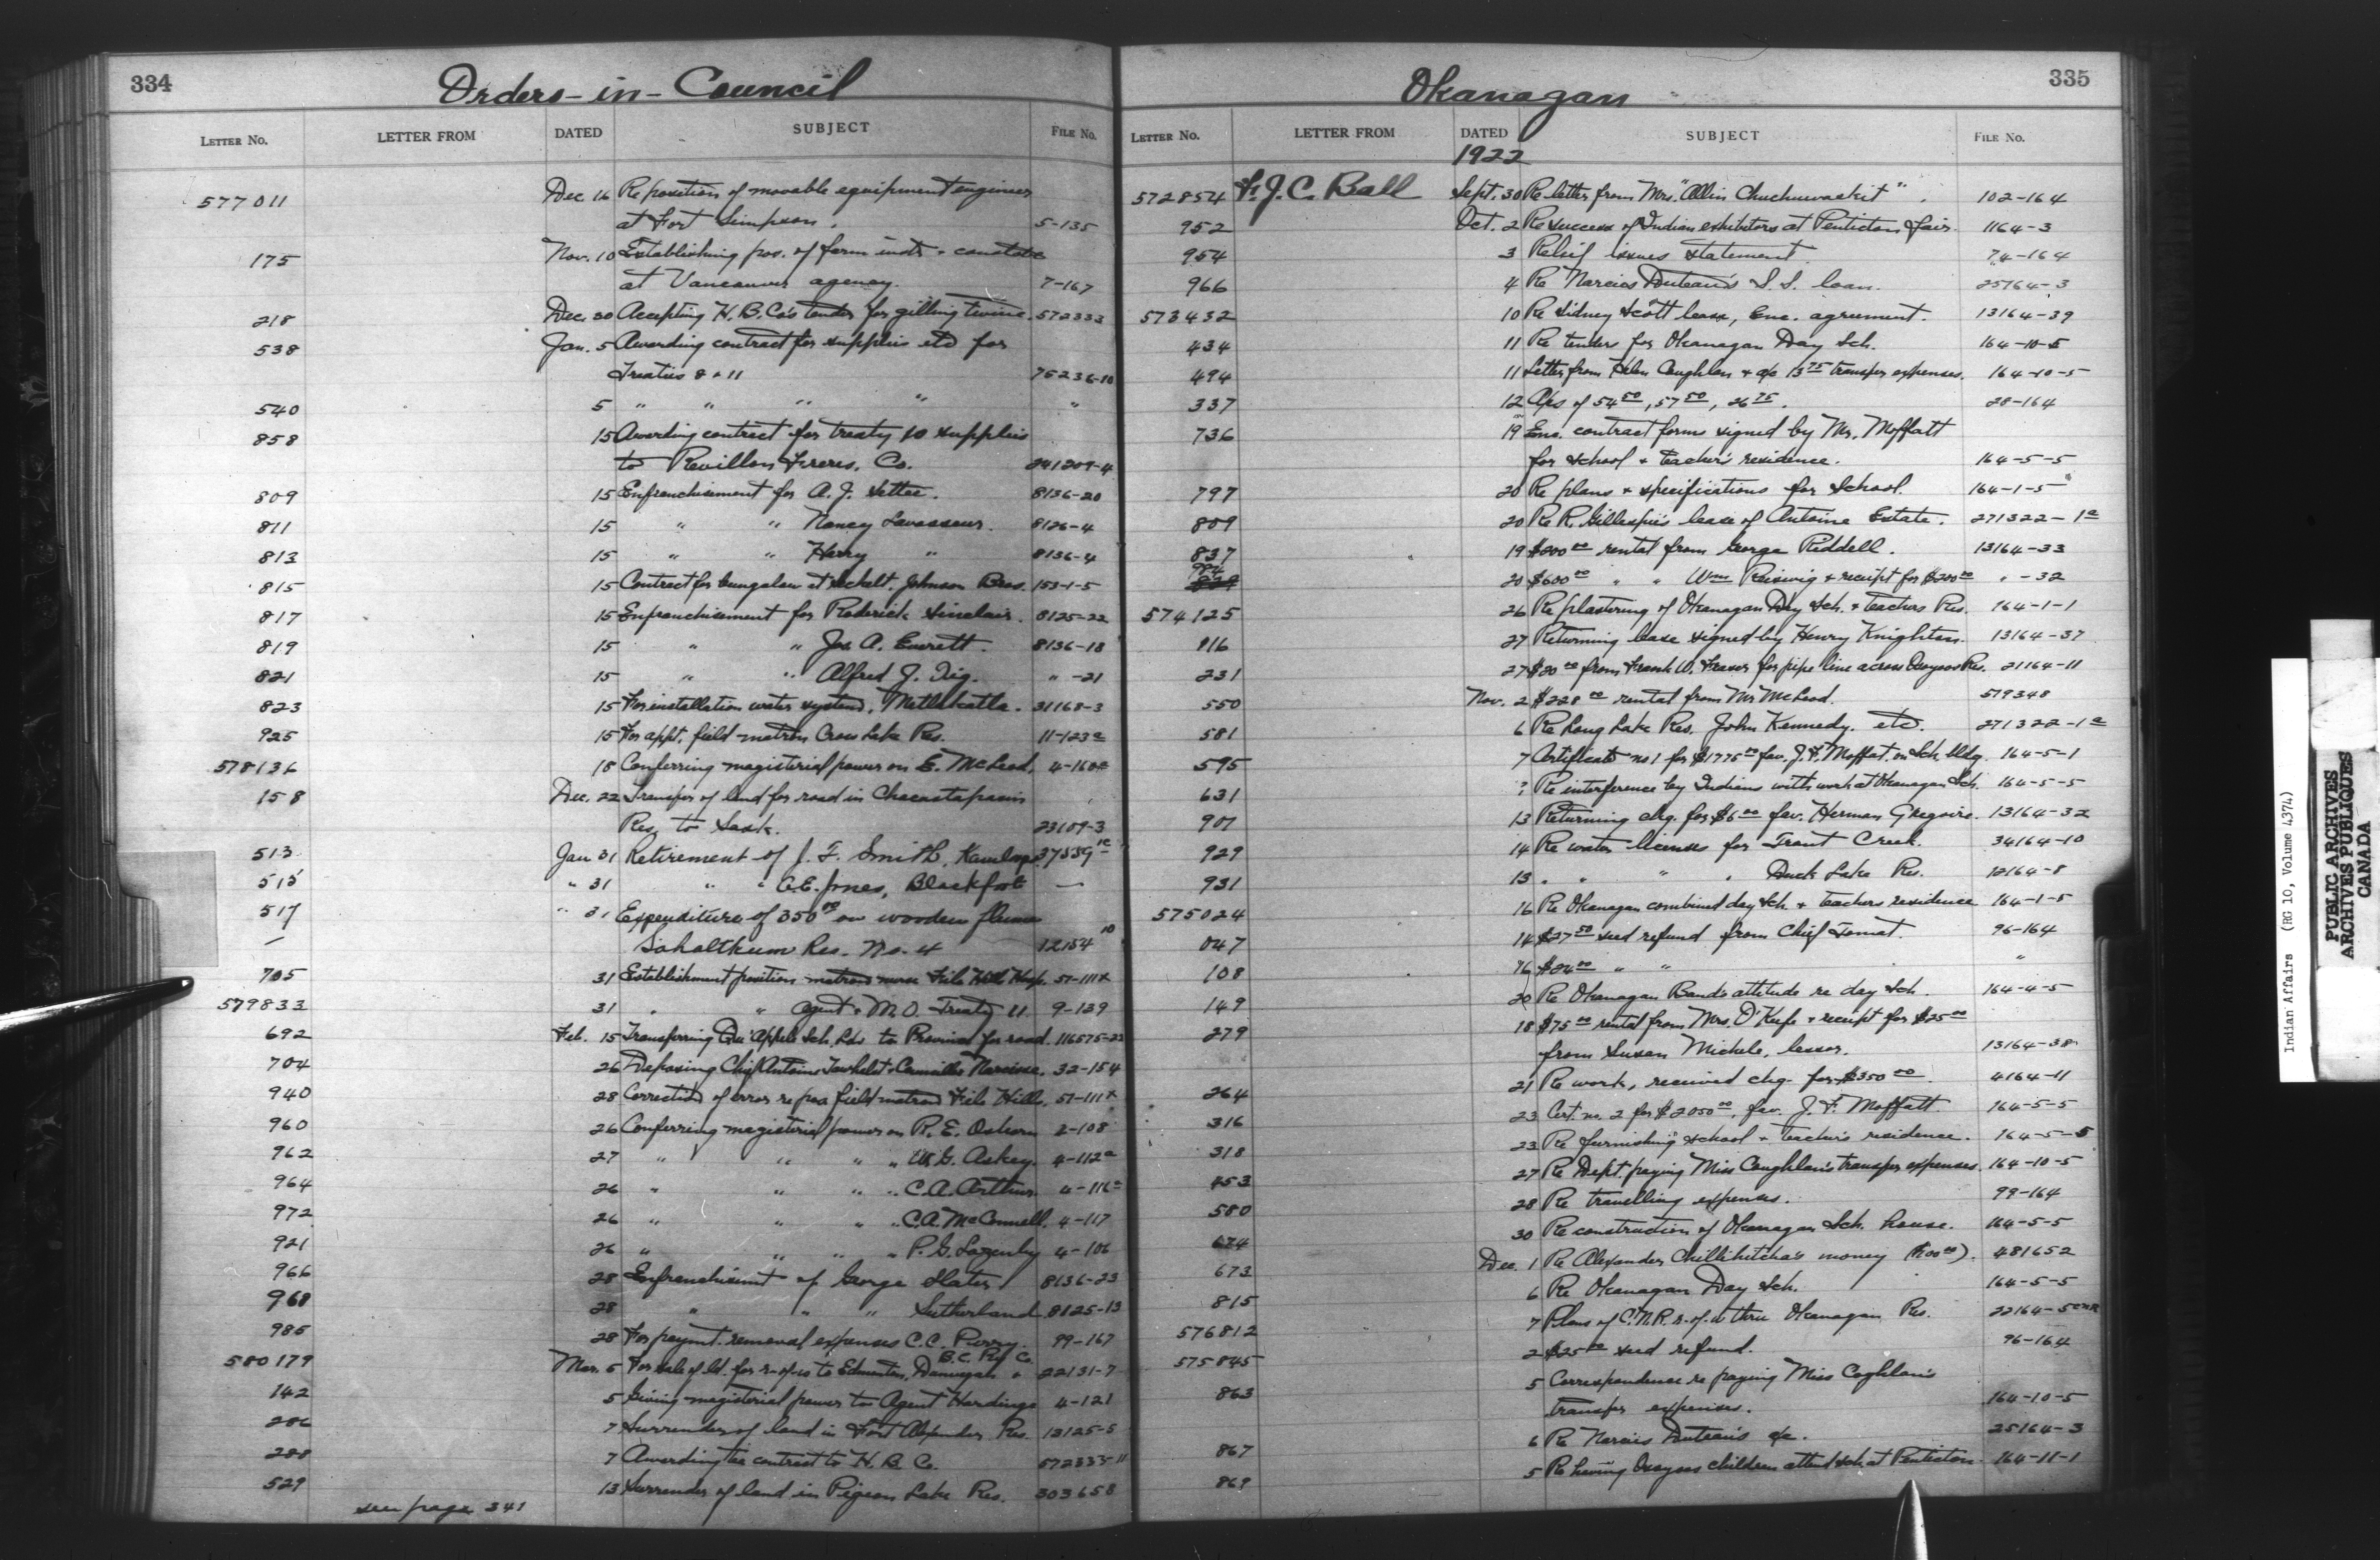 334
Orders-in-Council
LETTER No. LETTER FROM DATED SUBJECT FILE No.
577011 Dec. 16 Re position of movable equipment engineer
at Fort Simpson. 5-135
175 Nov. 10 Establishing pos. of farm instr. + constable
at Vancouver agency. 7-167
218 Dec. 30 Accepting H.B. Co's tender for gilling twine. 572333
538 Jan. 5 Awarding contract for supplies etc for
Treaties 8 + 11 75236-10
540 5 " " " " "
858 15 Awarding contract for treaty 10 supplies
to Revillon Freres. Co. 241209-4
809 15 Enfranchisement for A. J. Settee. 8136-20
811 15 " " Nancy Lavasseur. 8126-4
813 15 " " Harry " 8136-4
815 15 Contract for bungalow at Sechelt. Johnson Bros. 153-1-5
817 15 Enfranchisement for Roderick Sinclair. 8125-22
819 15 " " Jos. A. Everett. 8136-18
821 15 " " Alfred J. " -21
823 15 For installation water system, Metlakatla. 31168-3
925 15 For appt. field matron Cross Lake Res. 11-123a
578136 18 Conferring magisterial power on E. McLeod,
158 Dec. 22 Transfer of land for road in Chacastapasin
Res. to Sask. 23109-3
513 Jan 31 Retirement of J. F. Smith, Kamloops
515 " 31 " " G.E. Jones, Blackfoot —
517 " 31 Expenditure of 350.00 on wooden flume
— Sahaltkum Res. No. 4 12154 10
705 31 Establishment position matron nurse File Hills Hosp. 51-111x
579833 31 " " Agent + M.O. Treaty 11. 9-139
692 Feb. 15 Transferring Qu'Appelle Sch. Ld. to Province for road. 116575-23
704 26 Deposing Chief Antoine + Councillor Narcisse. 32-154
940 28 Correction of error re pos. field matron File Hills. 51-111x
960 26 Conferring magisterial power on R. E. Osborn 2-108
962 27 " " " " W.G. Askey. 4-112a
964 26 " " " " C.A. Arthur. 4-116a
972 26 " " " " C.A. McConnell. 4-117
921 26 " " " " P.G. Lazenby 4-106
966 28 Enfranchisement of George Slater 8136-23
968 28 " " " Sutherland 8125-13
985 28 For paymt. removal expenses C.C. Perry. 99-167
580179 Mar. 5 For sale of ld. for r-of-w to Edmonton, Dunvegan & B.C. Ry Co. 22131-7
142 5 Giving magisterial power to Agent Hardinge 4-121
286 7 Surrender of land in Fort Alexander Res. 13125-5
288 7 Awarding contract to H. B. Co. 572333-11
529 13 Surrender of land in Pigeon Lake Res. 303658
see page 341
335
Okanagan
LETTER No. LETTER FROM DATED SUBJECT FILE No.
1922
572854 F. J. C. Ball Sept. 30 Re letter from Mrs. "Allin Chuchuwackit". 102-164
952 Oct. 2 Re success of Indian exhibitors at Penticton fair. 1164-3
954 3 Relief issues statement. 74-164
966 4 Re Narcis Duteau's S.S. loan. 25164-3
573432 10 Re Sidney Scott lease, Enc. agreement. 13164-39
434 11 Re tender for Okanagan Day Sch. 164-10-5
494 11 Letter from Helen Coughlan + a/c 13.75 transfer expenses. 164-10-5
337 12 A/cs of 54.50, 57.50, 26.75. 28-164
736 19 Enc. contract forms signed by Mr. Moffatt
for school + teacher's residence. 164-5-5
797 20 Re plans + specifications for School. 164-1-5
809 20 Re R. Gillespie's lease of Antoine Estate. 271322-1a
837 19 $800.00 rental from George Riddell. 13164-33
20 $600.00 " " Wm. Reiswig + receipt for $200.00 " -32
574125 26 Re plastering of Okanagan Day Sch. + Teachers Res. 164-1-1
116 27 Returning lease signed by Henry Knighton. 13164-37
231 27 $20.00 from Frank W. Fraser for pipe line across Osoyoos Res. 21164-11
550 Nov. 2 $228.00 rental from Mr McLeod. 519348
581 6 Re Long Lake Res. John Kennedy. etc. 271322-1a
595 7 Certificate no 1 for $1775.00 fav. J. F. Moffat, on Sch. bldg. 164-5-1
631 ? Re interference by Indians with work at Okanagan Sch. 164-5-5
907 13 Returning chq. for $6.00 fav. Herman Gregoire. 13164-32
929 14 Re water licenses for Trout Creek. 34164-10
931 13 " " " " Duck Lake Res. 12164-8
575024 16 Re Okanagan combined day sch. + teachers residence 164-1-5
047 14 $27.50 seed refund from Chief Tomat. 96-164
108 16 $24.00 " " "
149 20 Re Okanagan Band's attitude re day sch. 164-4-5
279 18 $75.00 rental from Mrs. O'Keefe + receipt for $25.00
from Susan Michele, lessor. 13164-38
264 21 Re work, received chq. for $350.00. 4164-11
316 23 Cert. no. 2 for $2050.00, fav. J. F. Moffatt. 164-5-5
318 23 Re furnishing school + Teacher's residence. 164-5-5
453 27 Re Dept. paying Miss Coughlan's transfer expenses. 164-10-5
580 28 Re travelling expenses. 99-164
674 30 Re construction of Okanagan Sch. house. 164-5-5
673 Dec. 1 Re Alexander Chillihitcha's money ($100.00). 481652
815 6 Re Okanagan Day Sch. 164-5-5
576812 7 Plans of C.N.R. r-of-w thru Okanagan Res. 22164-5 CNR
575845 2 $25.00 seed refund. 96-164
863 5 Correspondence re paying Miss Coghlan's
transfer expenses. 164-10-5
867 6 Re Narcis Duteau's a/c. 25164-3
869 5 Re having Osoyoos children attend sch. at Penticton. 164-11-1
Indian Affairs (RG 10, Volume 4374)
PUBLIC ARCHIVES
ARCHIVES PUBLIQUES
CANADA